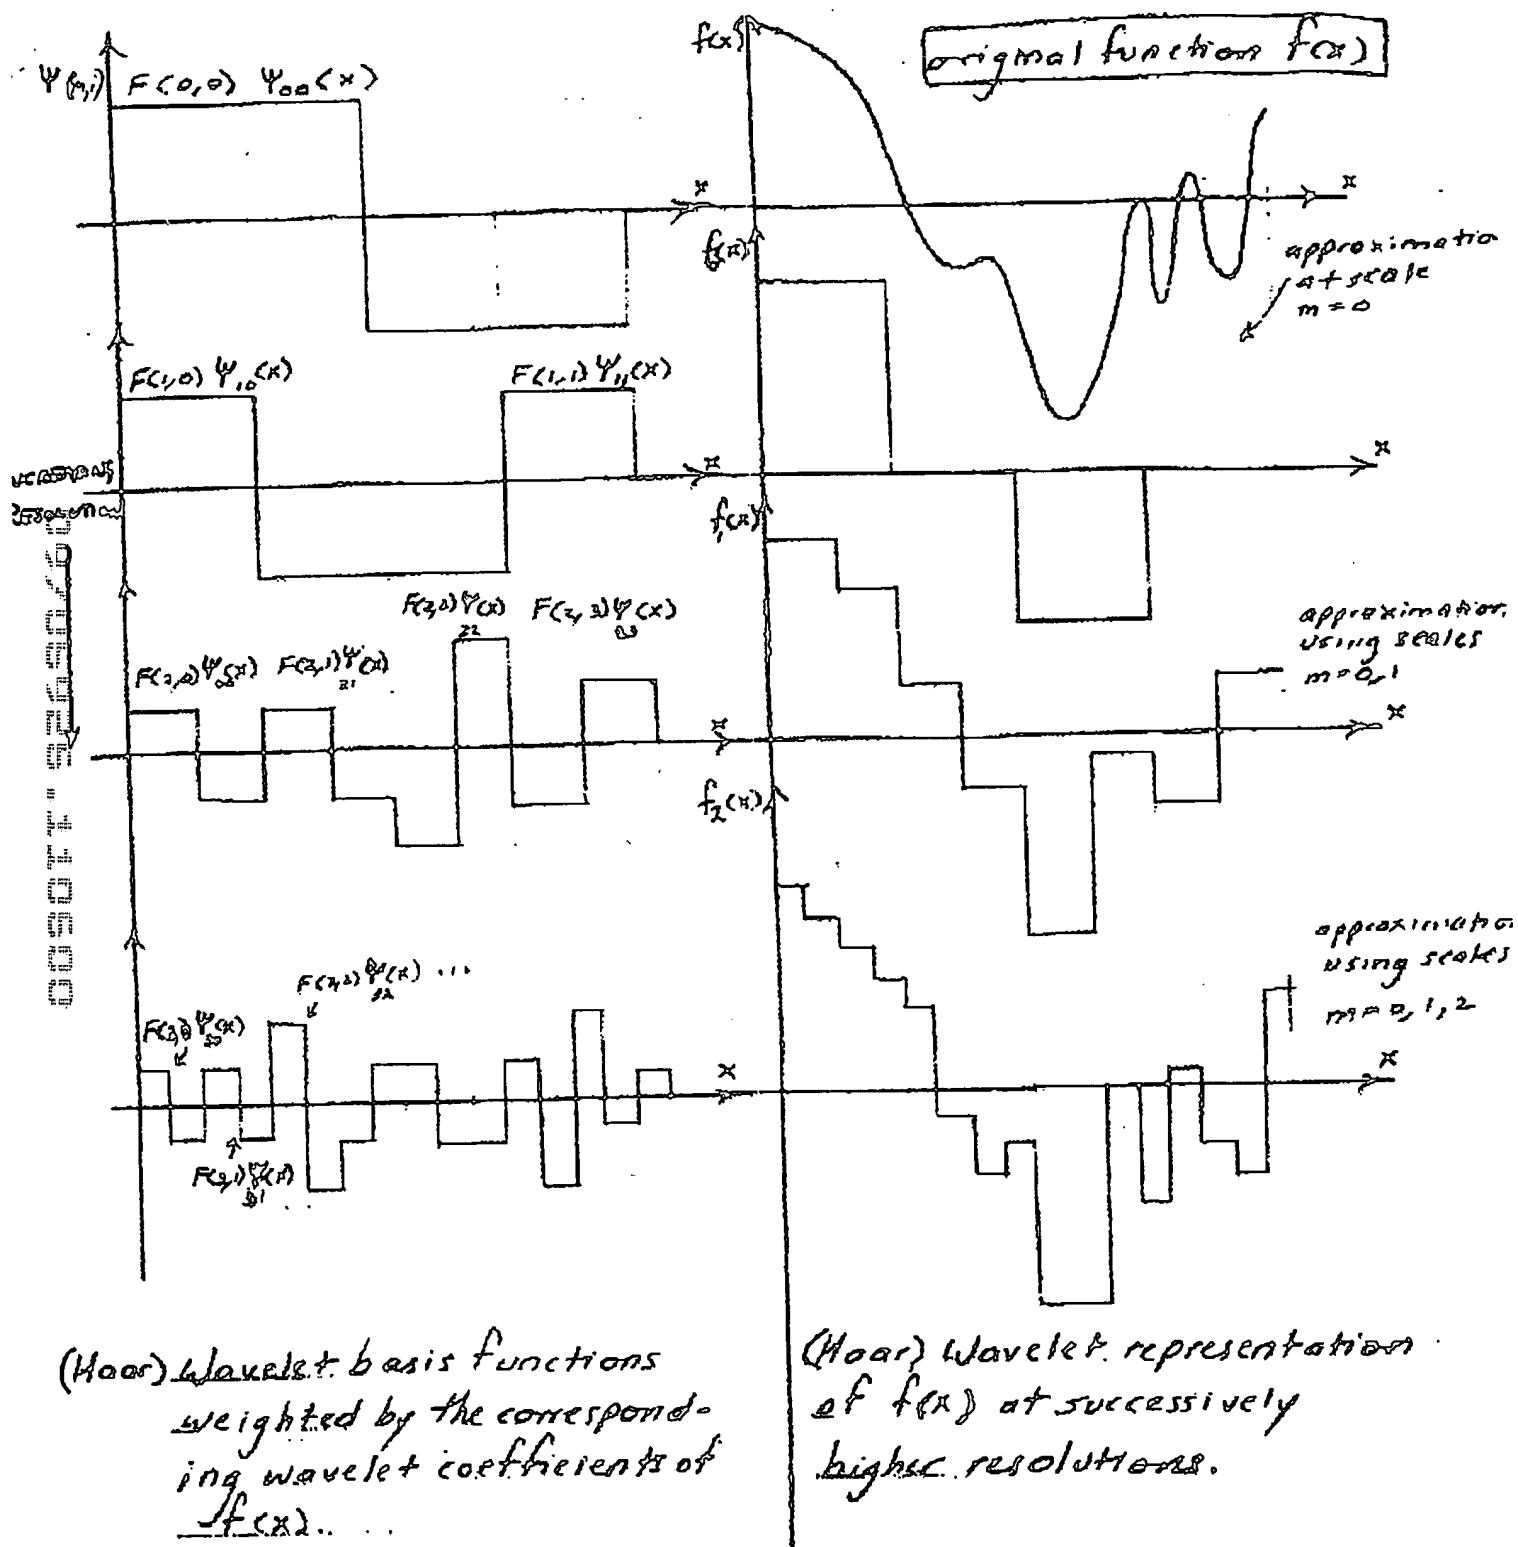 Ψ(m,i) F(0,0) Ψ₀₀(x)
x
F(1,0) Ψ₁₀(x) F(1,1) Ψ₁₁(x)
x
F(2,0)Ψ(x) F(2,1)Ψ(x) F(2,2)Ψ(x) F(2,3)Ψ(x)
21 22
x
F(3,0)Ψ(x) F(3,2)Ψ(x) ...
32
F(3,1)Ψ(x)
31
x
(Haar) Wavelet basis functions
weighted by the correspond-
ing wavelet coefficients of
f(x).
original function f(x)
f(x)
x
approximatio
at scale
m=0
f₀(x)
x
f₁(x)
approximation
using scales
m=0,1
x
f₂(x)
approximatio
using scales
m=0,1,2
x
(Haar) Wavelet representation
of f(x) at successively
higher resolutions.